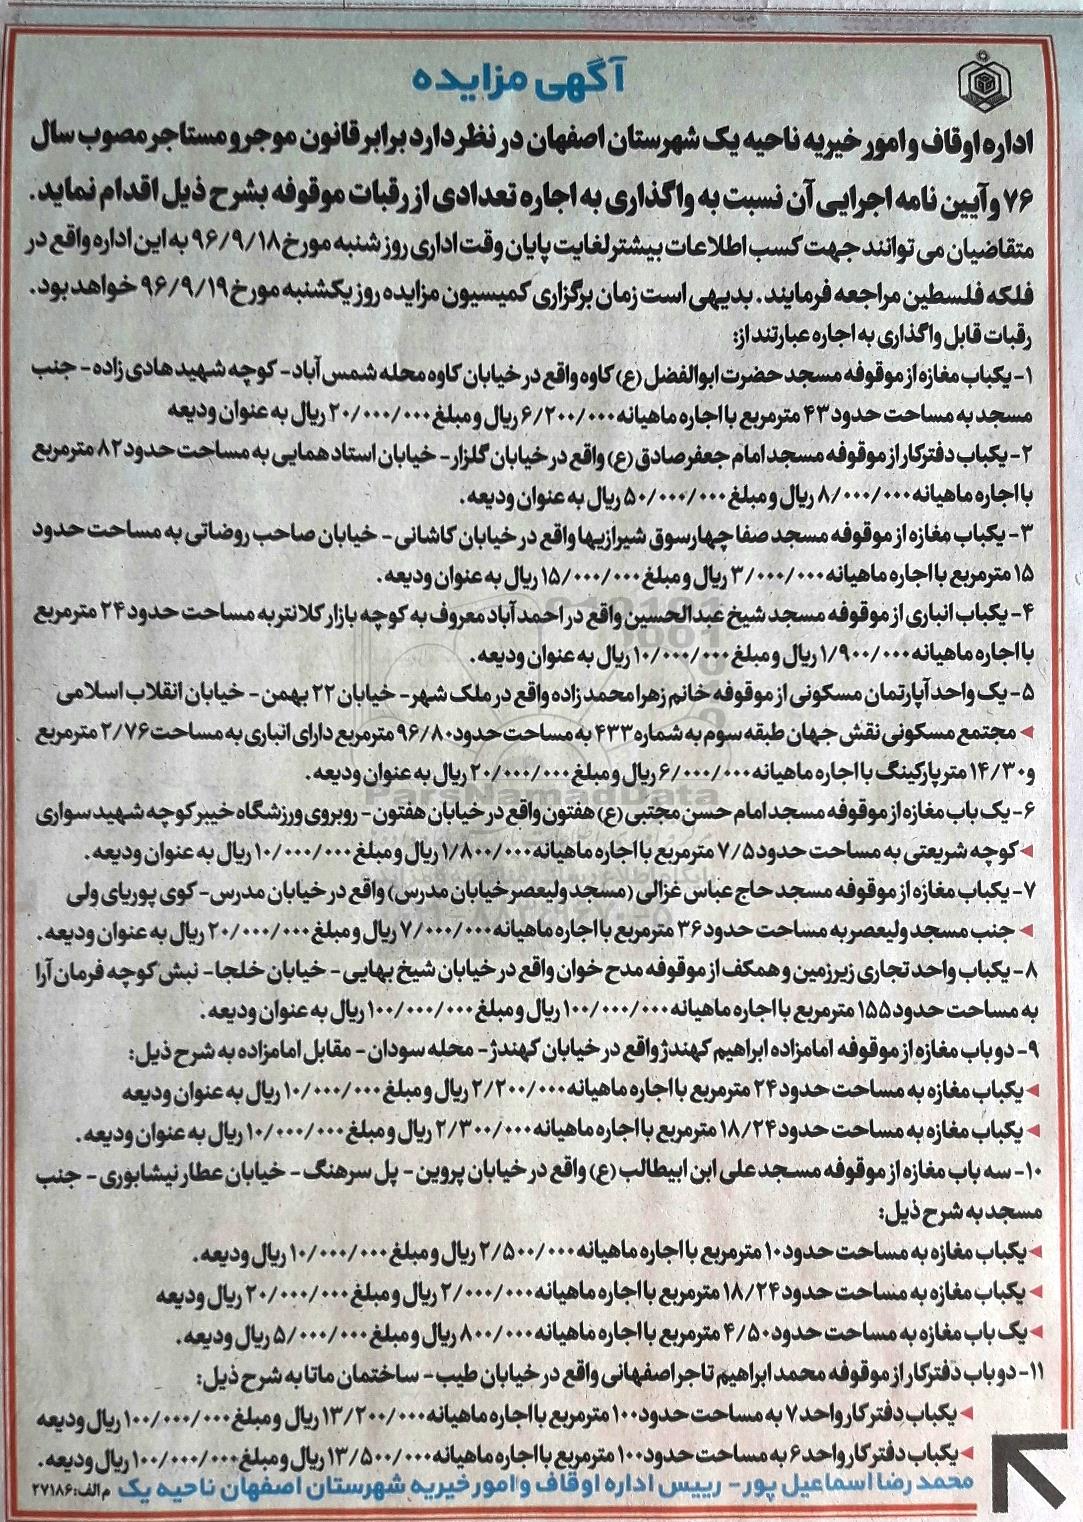 آگهی مزایده
اداره اوقاف و امور خیریه ناحیه یک شهرستان اصفهان در نظر دارد برابر قانون موجر و مستاجر مصوب سال
۷۶ و آیین نامه اجرایی آن نسبت به واگذاری به اجاره تعدادی از رقبات موقوفه بشرح ذیل اقدام نماید.
متقاضیان می توانند جهت کسب اطلاعات بیشتر لغایت پایان وقت اداری روز شنبه مورخ ۹۶/۹/۱۸ به این اداره واقع در
فلکه فلسطین مراجعه فرمایند. بدیهی است زمان برگزاری کمیسیون مزایده روز یکشنبه مورخ ۹۶/۹/۱۹ خواهد بود.
رقبات قابل واگذاری به اجاره عبارتند از:
۱- یکباب مغازه از موقوفه مسجد حضرت ابوالفضل (ع) کاوه واقع در خیابان کاوه محله شمس آباد- کوچه شهید هادی زاده- جنب
مسجد به مساحت حدود ۴۳ مترمربع با اجاره ماهیانه ۶/۲۰۰/۰۰۰ ریال و مبلغ ۲۰/۰۰۰/۰۰۰ ریال به عنوان ودیعه
۲- یکباب دفتر کار از موقوفه مسجد امام جعفر صادق (ع) واقع در خیابان گلزار- خیابان استاد همایی به مساحت حدود ۸۲ مترمربع
با اجاره ماهیانه ۸/۰۰۰/۰۰۰ ریال و مبلغ ۵۰/۰۰۰/۰۰۰ ریال به عنوان ودیعه.
۳- یکباب مغازه از موقوفه مسجد صفا چهارسوق شیرازیها واقع در خیابان کاشانی- خیابان صاحب روضاتی به مساحت حدود
۱۵ مترمربع با اجاره ماهیانه ۳/۰۰۰/۰۰۰ ریال و مبلغ ۱۵/۰۰۰/۰۰۰ ریال به عنوان ودیعه.
۴- یکباب انباری از موقوفه مسجد شیخ عبدالحسین واقع در احمدآباد معروف به کوچه بازار کلانتر به مساحت حدود ۲۴ مترمربع
با اجاره ماهیانه ۱/۹۰۰/۰۰۰ ریال و مبلغ ۱۰/۰۰۰/۰۰۰ ریال به عنوان ودیعه.
۵- یک واحد آپارتمان مسکونی از موقوفه خانم زهرا محمدزاده واقع در ملک شهر- خیابان ۲۲ بهمن- خیابان انقلاب اسلامی
◄ مجتمع مسکونی نقش جهان طبقه سوم به شماره ۴۳۳ به مساحت حدود ۹۶/۸۰ مترمربع دارای انباری به مساحت ۲/۷۶ مترمربع
و ۱۴/۳۰ متر پارکینگ با اجاره ماهیانه ۶/۰۰۰/۰۰۰ ریال و مبلغ ۲۰/۰۰۰/۰۰۰ ریال به عنوان ودیعه.
۶- یک باب مغازه از موقوفه مسجد امام حسن مجتبی (ع) هفتون واقع در خیابان هفتون- روبروی ورزشگاه خیبر کوچه شهید سواری
◄ کوچه شریعتی به مساحت حدود ۷/۵ مترمربع با اجاره ماهیانه ۱/۸۰۰/۰۰۰ ریال و مبلغ ۱۰/۰۰۰/۰۰۰ ریال به عنوان ودیعه.
۷- یکباب مغازه از موقوفه مسجد حاج عباس غزالی (مسجد ولیعصر خیابان مدرس) واقع در خیابان مدرس- کوی پوریای ولی
◄ جنب مسجد ولیعصر به مساحت حدود ۳۶ مترمربع با اجاره ماهیانه ۷/۰۰۰/۰۰۰ ریال و مبلغ ۲۰/۰۰۰/۰۰۰ ریال به عنوان ودیعه.
۸- یکباب واحد تجاری زیرزمین و همکف از موقوفه مدح خوان واقع در خیابان شیخ بهایی- خیابان خلجا- نبش کوچه فرمان آرا
به مساحت حدود ۱۵۵ مترمربع با اجاره ماهیانه ۱۰۰/۰۰۰/۰۰۰ ریال و مبلغ ۱۰۰/۰۰۰/۰۰۰ ریال به عنوان ودیعه.
۹- دو باب مغازه از موقوفه امامزاده ابراهیم کهندژ واقع در خیابان کهندژ- محله سودان- مقابل امامزاده به شرح ذیل:
◄ یکباب مغازه به مساحت حدود ۲۴ مترمربع با اجاره ماهیانه ۲/۲۰۰/۰۰۰ ریال و مبلغ ۱۰/۰۰۰/۰۰۰ ریال به عنوان ودیعه
◄ یکباب مغازه به مساحت حدود ۱۸/۲۴ مترمربع با اجاره ماهیانه ۲/۳۰۰/۰۰۰ ریال و مبلغ ۱۰/۰۰۰/۰۰۰ ریال به عنوان ودیعه.
۱۰- سه باب مغازه از موقوفه مسجد علی ابن ابیطالب (ع) واقع در خیابان پروین- پل سرهنگ- خیابان عطار نیشابوری- جنب
مسجد به شرح ذیل:
◄ یکباب مغازه به مساحت حدود ۱۰ مترمربع با اجاره ماهیانه ۲/۵۰۰/۰۰۰ ریال و مبلغ ۱۰/۰۰۰/۰۰۰ ریال ودیعه.
◄ یکباب مغازه به مساحت حدود ۱۸/۲۴ مترمربع با اجاره ماهیانه ۲/۰۰۰/۰۰۰ ریال و مبلغ ۲۰/۰۰۰/۰۰۰ ریال ودیعه
◄ یک باب مغازه به مساحت حدود ۴/۵۰ مترمربع با اجاره ماهیانه ۸۰۰/۰۰۰ ریال و مبلغ ۵/۰۰۰/۰۰۰ ریال ودیعه.
۱۱- دو باب دفتر کار از موقوفه محمد ابراهیم تاجر اصفهانی واقع در خیابان طیب- ساختمان ماتا به شرح ذیل:
◄ یکباب دفتر کار واحد ۷ به مساحت حدود ۱۰۰ مترمربع با اجاره ماهیانه ۱۳/۲۰۰/۰۰۰ ریال و مبلغ ۱۰۰/۰۰۰/۰۰۰ ریال ودیعه
◄ یکباب دفتر کار واحد ۶ به مساحت حدود ۱۰۰ مترمربع با اجاره ماهیانه ۱۳/۵۰۰/۰۰۰ ریال و مبلغ ۱۰۰/۰۰۰/۰۰۰ ریال ودیعه.
محمدرضا اسماعیل پور- رییس اداره اوقاف و امور خیریه شهرستان اصفهان ناحیه یک م الف: ۲۷۱۸۶
ParsNamadData